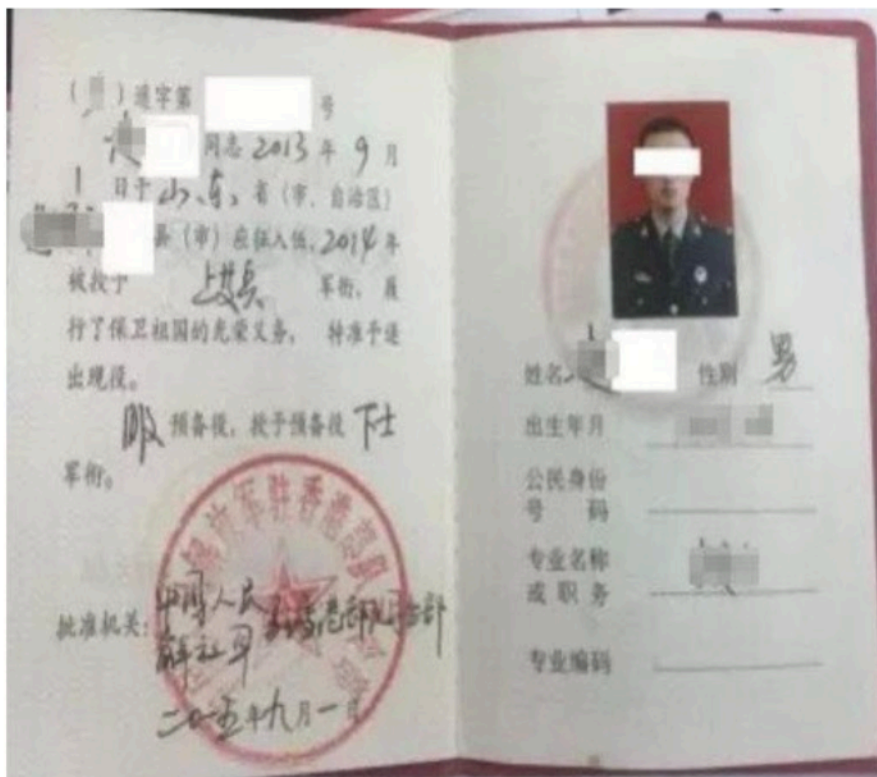 ( ) 退字第 号
同志2013年9月
1日于山东省(市、自治区)
县(市)应征入伍,2014年
被授予 上等兵 军衔,履
行了保卫祖国的光荣义务, 特准予退
出现役。
服预备役,授予预备役下士
军衔。
批准机关:中国人民
解放军驻香港部队司令部
二〇一五年九月一日
解放军驻香港部队
姓名 性别 男
出生年月
公民身份
号 码
专业名称
或职务
专业编码